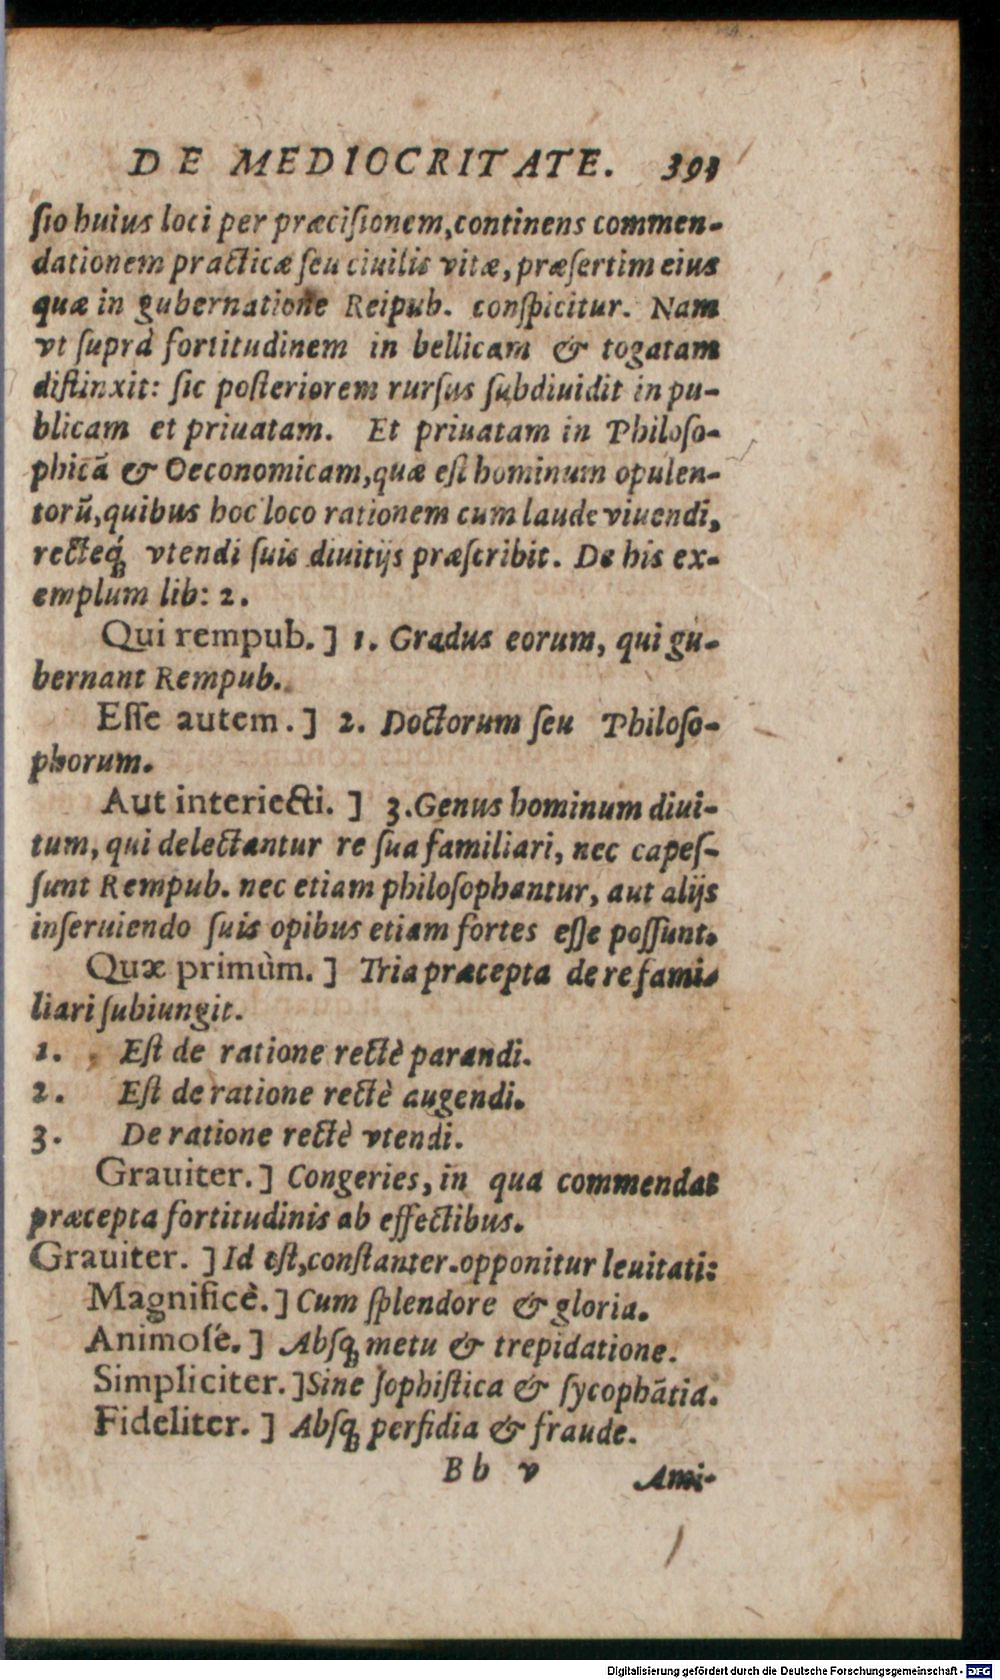 DE MEDIOCRITATE. 393
ſio huius loci per præciſionem, continens commen-
dationem practicæ ſeu ciuilis vitæ, præſertim eius
quæ in gubernatione Reipub. conſpicitur. Nam
vt ſuprà fortitudinem in bellicam & togatam
diſtinxit: ſic poſteriorem rurſus ſubdiuidit in pu-
blicam et priuatam. Et priuatam in Philoſo-
phicā & Oeconomicam, quæ eſt hominum opulen-
torū, quibus hoc loco rationem cum laude viuendi,
recteq́ꝫ vtendi ſuis diuitijs præſcribit. De his ex-
emplum lib: 2.
Qui rempub. ] 1. Gradus eorum, qui gu-
bernant Rempub.
Eſſe autem. ] 2. Doctorum ſeu Philoſo-
phorum.
Aut interiecti. ] 3. Genus hominum diui-
tum, qui delectantur re ſua familiari, nec capeſ-
ſunt Rempub. nec etiam philoſophantur, aut alijs
inſeruiendo ſuis opibus etiam fortes eſſe poſſunt.
Quæ primùm. ] Tria præcepta de re fami-
liari ſubiungit.
1. Eſt de ratione rectè parandi.
2. Eſt de ratione rectè augendi.
3. De ratione rectè vtendi.
Grauiter. ] Congeries, in qua commendat
præcepta fortitudinis ab effectibus.
Grauiter. ] Id eſt, conſtanter. opponitur leuitati:
Magnificè. ] Cum ſplendore & gloria.
Animoſé. ] Abſqꝫ metu & trepidatione.
Simpliciter. ] Sine ſophiſtica & ſycophātia.
Fideliter. ] Abſqꝫ perfidia & fraude.
B b v Ami-
Digitalisierung gefördert durch die Deutsche Forschungsgemeinschaft - DFG